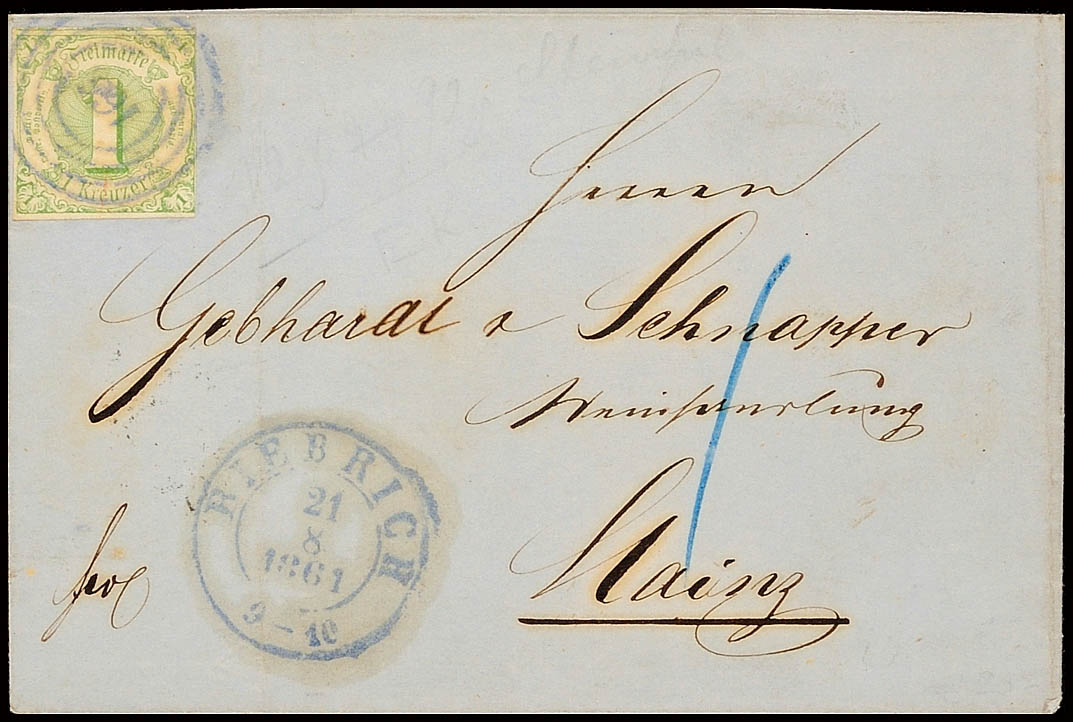 Freimarke
1
1 Kreuzer
Herrn
Gebhardt & Schnapper
Weinhandlung
Mainz
fro
BIEBRICH
21
8
1861
9-10